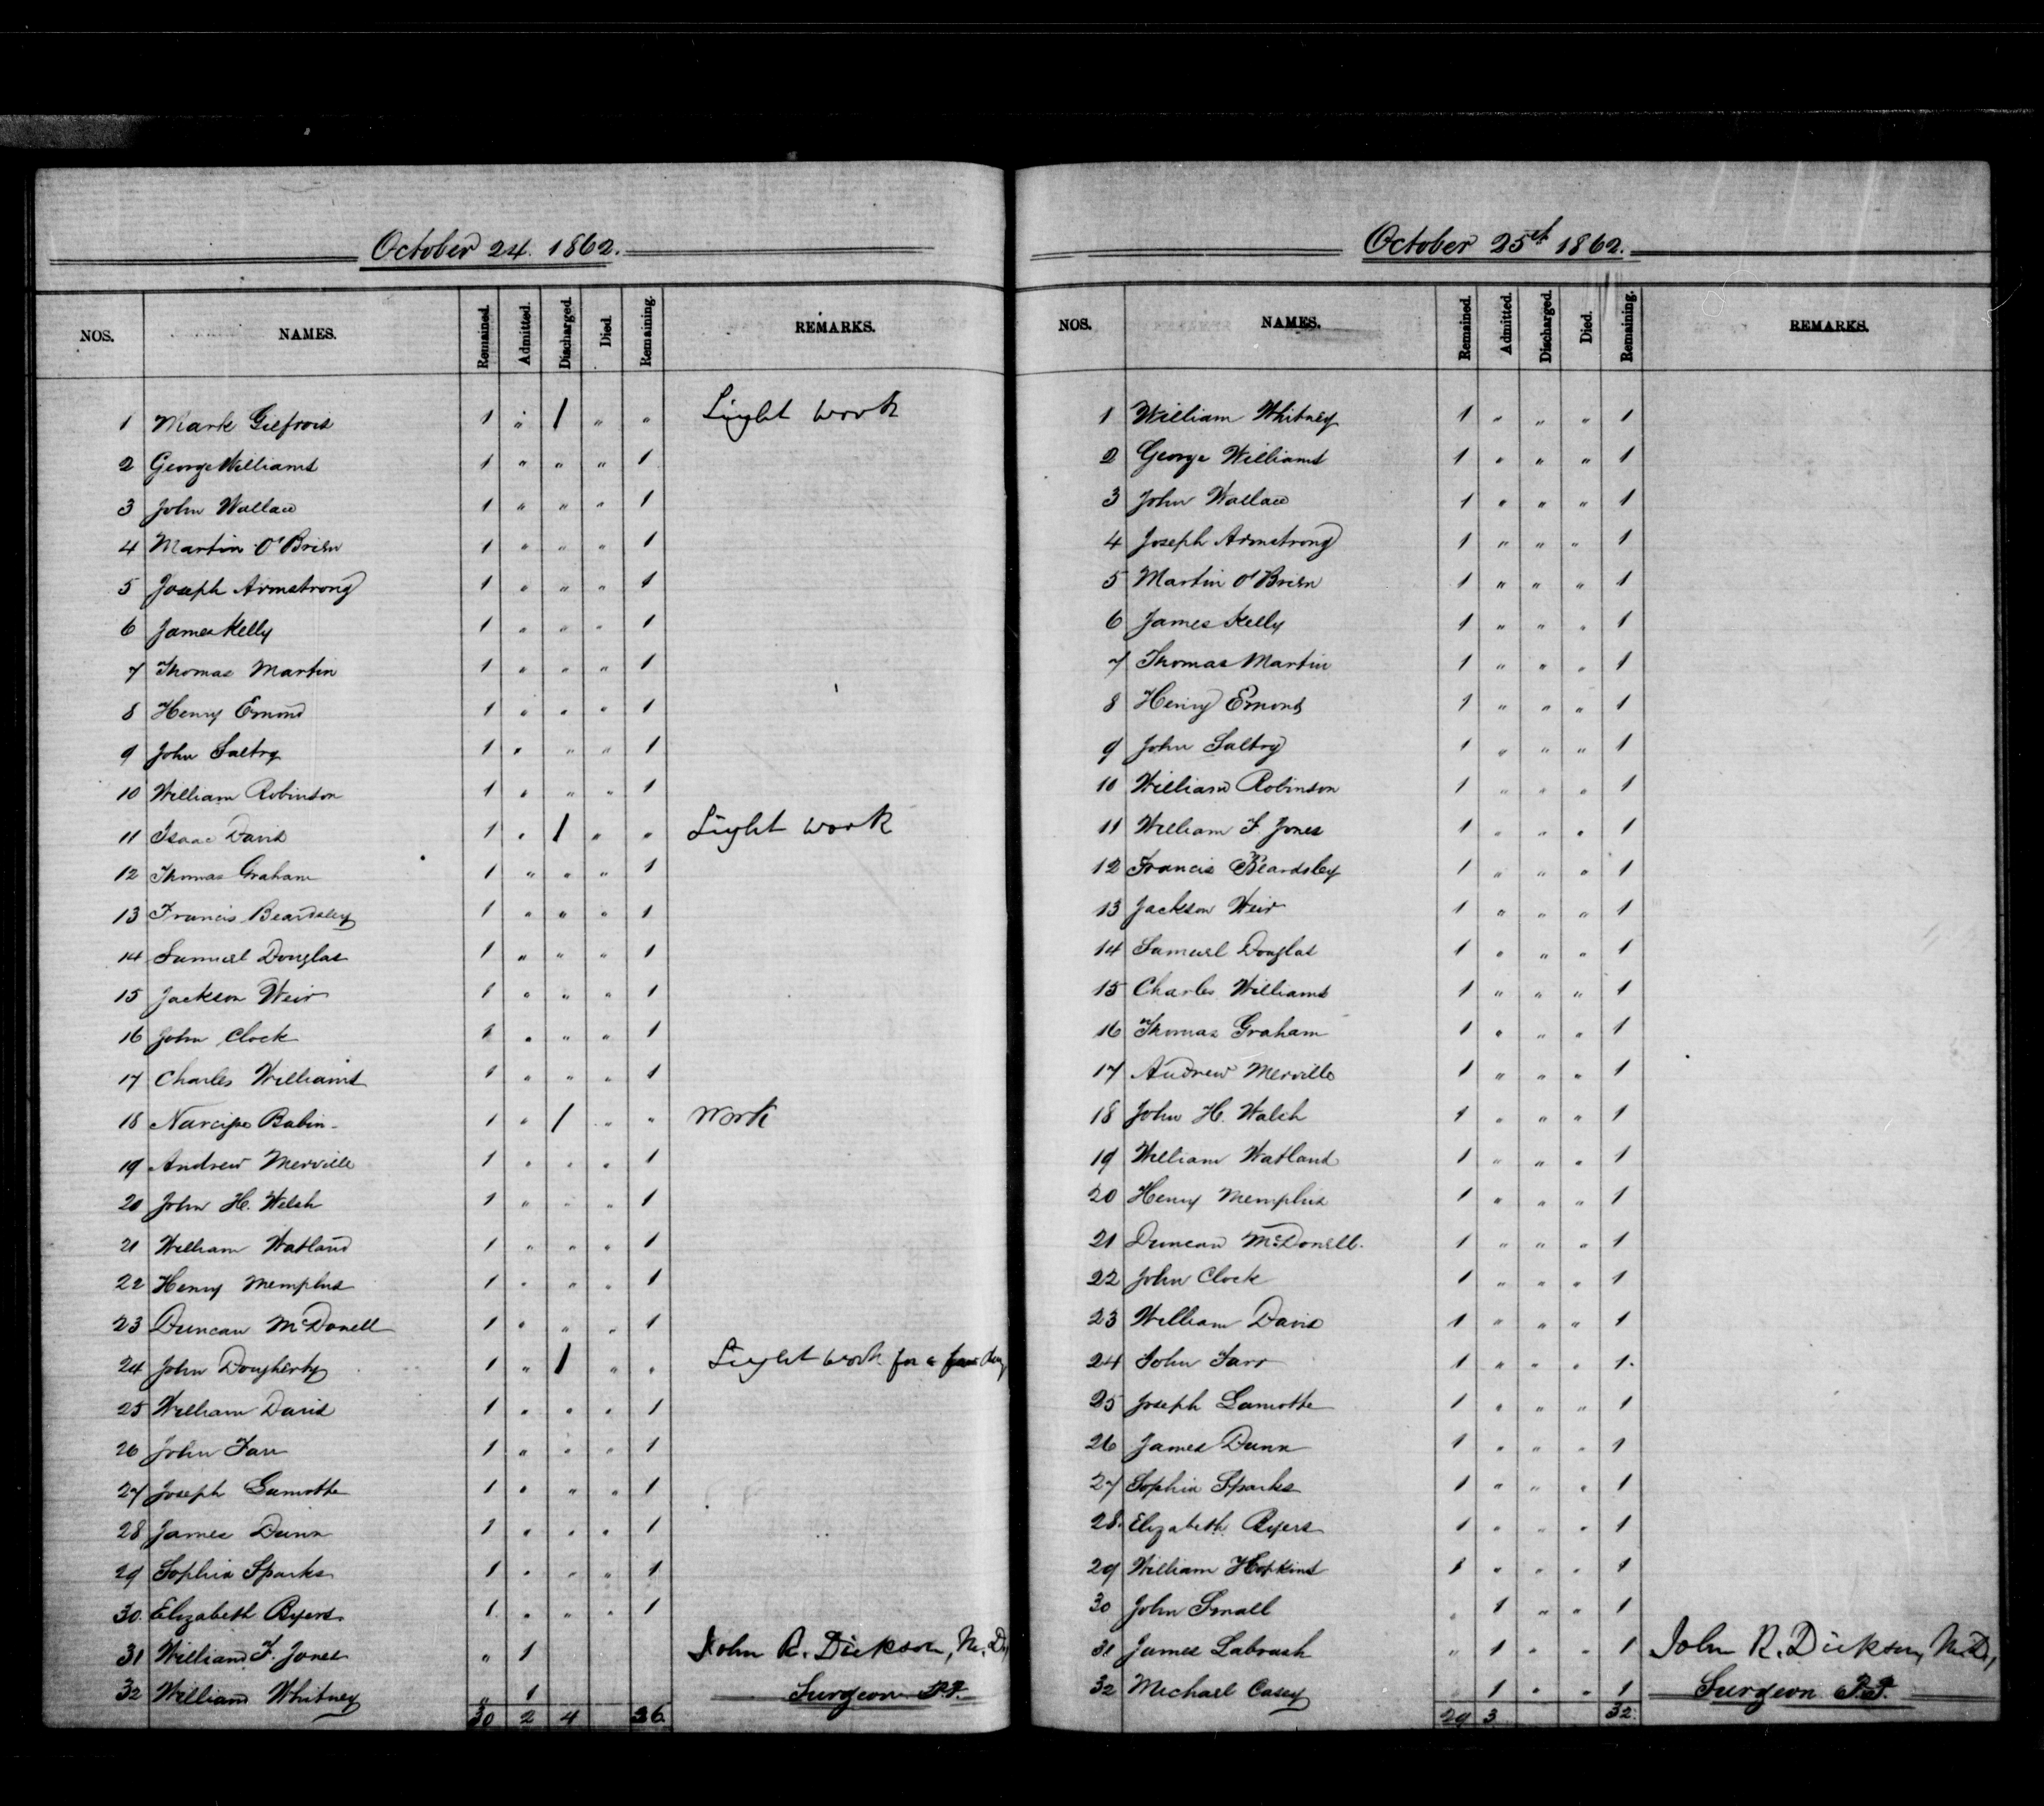 October 24. 1862.
NOS. NAMES. Remained. Admitted. Discharged. Died. Remaining. REMARKS.
1 Mark Gilfrois 1 " 1 " " Light work
2 George Williams 1 " " " 1
3 John Wallace 1 " " " 1
4 Martin O'Brien 1 " " " 1
5 Joseph Armstrong 1 " " " 1
6 James Kelly 1 " " " 1
7 Thomas Martin 1 " " " 1
8 Henry Emond 1 " " " 1
9 John Saltry 1 " " " 1
10 William Robinson 1 " " " 1
11 Isaac David 1 " 1 " " Light work
12 Thomas Graham 1 " " " 1
13 Francis Beardsley 1 " " " 1
14 Samuel Douglas 1 " " " 1
15 Jackson Weir 1 " " " 1
16 John Clock 1 " " " 1
17 Charles Williams 1 " " " 1
18 Narcisse Babin 1 " 1 " " Work
19 Andrew Merville 1 " " " 1
20 John H. Welsh 1 " " " 1
21 William Watland 1 " " " 1
22 Henry Memphis 1 " " " 1
23 Duncan McDonell 1 " " " 1
24 John Dougherty 1 " 1 " " Light work for a few days
25 William David 1 " " " 1
26 John Farr 1 " " " 1
27 Joseph Lamothe 1 " " " 1
28 James Dunn 1 " " " 1
29 Sophia Sparks 1 " " " 1
30. Elizabeth Byers. 1 " " " 1
31 William F. Jones " 1 John R. Dickson, M.D,
32 William Whitney " 1 Surgeon P.P.
30 2 4 26
October 25et 1862.
NOS. NAMES. Remained. Admitted. Discharged. Died. Remaining. REMARKS.
1 William Whitney 1 " " " 1
2 George Williams 1 " " " 1
3 John Wallace 1 " " " 1
4 Joseph Armstrong 1 " " " 1
5 Martin O'Brien 1 " " " 1
6 James Kelly 1 " " " 1
7 Thomas Martin 1 " " " 1
8 Henry Emond 1 " " " 1
9 John Saltry 1 " " " 1
10 William Robinson 1 " " " 1
11 William F Jones 1 " " " 1
12 Francis Beardsley 1 " " " 1
13 Jackson Weir 1 " " " 1
14 Samuel Douglas 1 " " " 1
15 Charles Williams 1 " " " 1
16 Thomas Graham 1 " " " 1
17 Andrew Merville 1 " " " 1
18 John H. Walsh 1 " " " 1
19 William Watland 1 " " " 1
20 Henry Memphis 1 " " " 1
21 Duncan McDonell. 1 " " " 1
22 John Clock 1 " " " 1
23 William David 1 " " " 1
24 John Farr 1 " " " 1.
25 Joseph Lamothe 1 " " " 1
26 James Dunn 1 " " " 1
27 Sophia Sparks 1 " " " 1
28. Elizabeth Byers 1 " " " 1
29 William Hopkins 1 " " " 1
30 John Small " 1 " " 1
31 James Labrash " 1 " " 1 John R. Dickson, M.D,
32 Michael Casey " 1 " " 1 Surgeon P.P.
29 3 32.